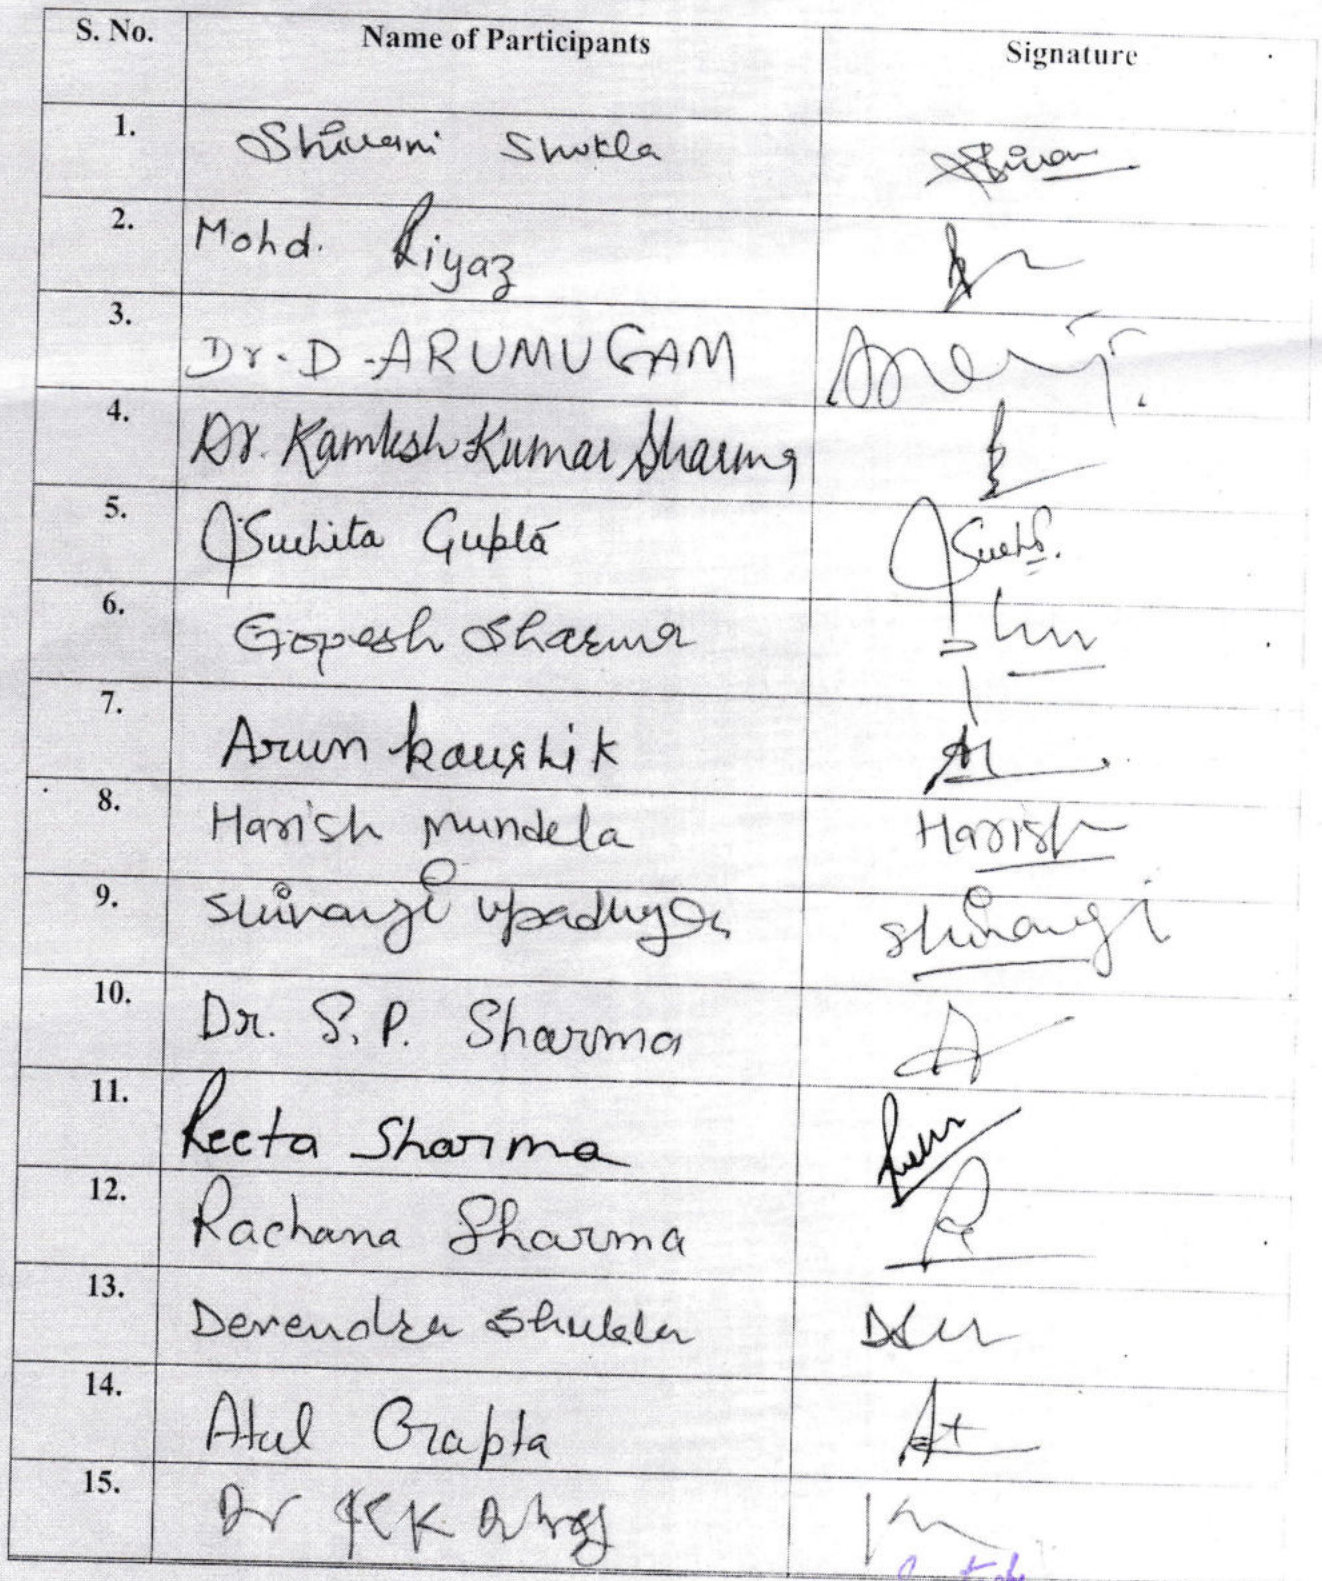 S. No. Name of Participants Signature
1. Shivani Shukla Shivan
2. Mohd. Riyaz
3. Dr. D. ARUMUGAM
4. Dr. Kamlesh Kumar Sharma
5. Suchita Gupta Suchi.
6. Gopesh Sharma
7. Arun kaushik
8. Harish mundela Harish
9. Shivangi Upadhyay Shivangi
10. Dr. S. P. Sharma
11. Reeta Sharma
12. Rachana Sharma
13. Devendra Shukla
14. Atul Gupta At
15. Dr K K